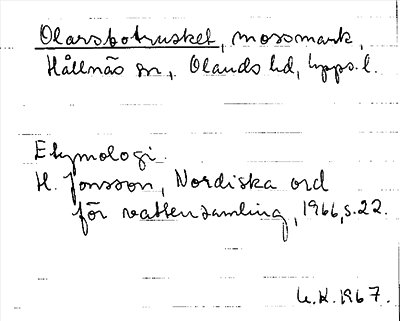 Olarsbotrusket, mossmark,
Hållnäs sn, Olands hd, Upps. l.
Etymologi.
H. Jonsson, Nordiska ord
för vattensamling, 1966, s. 22.
U.K. 1967.